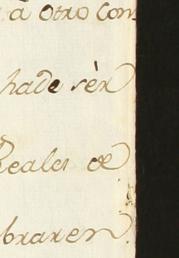 a otro con
hade sèr
Reales de
braren